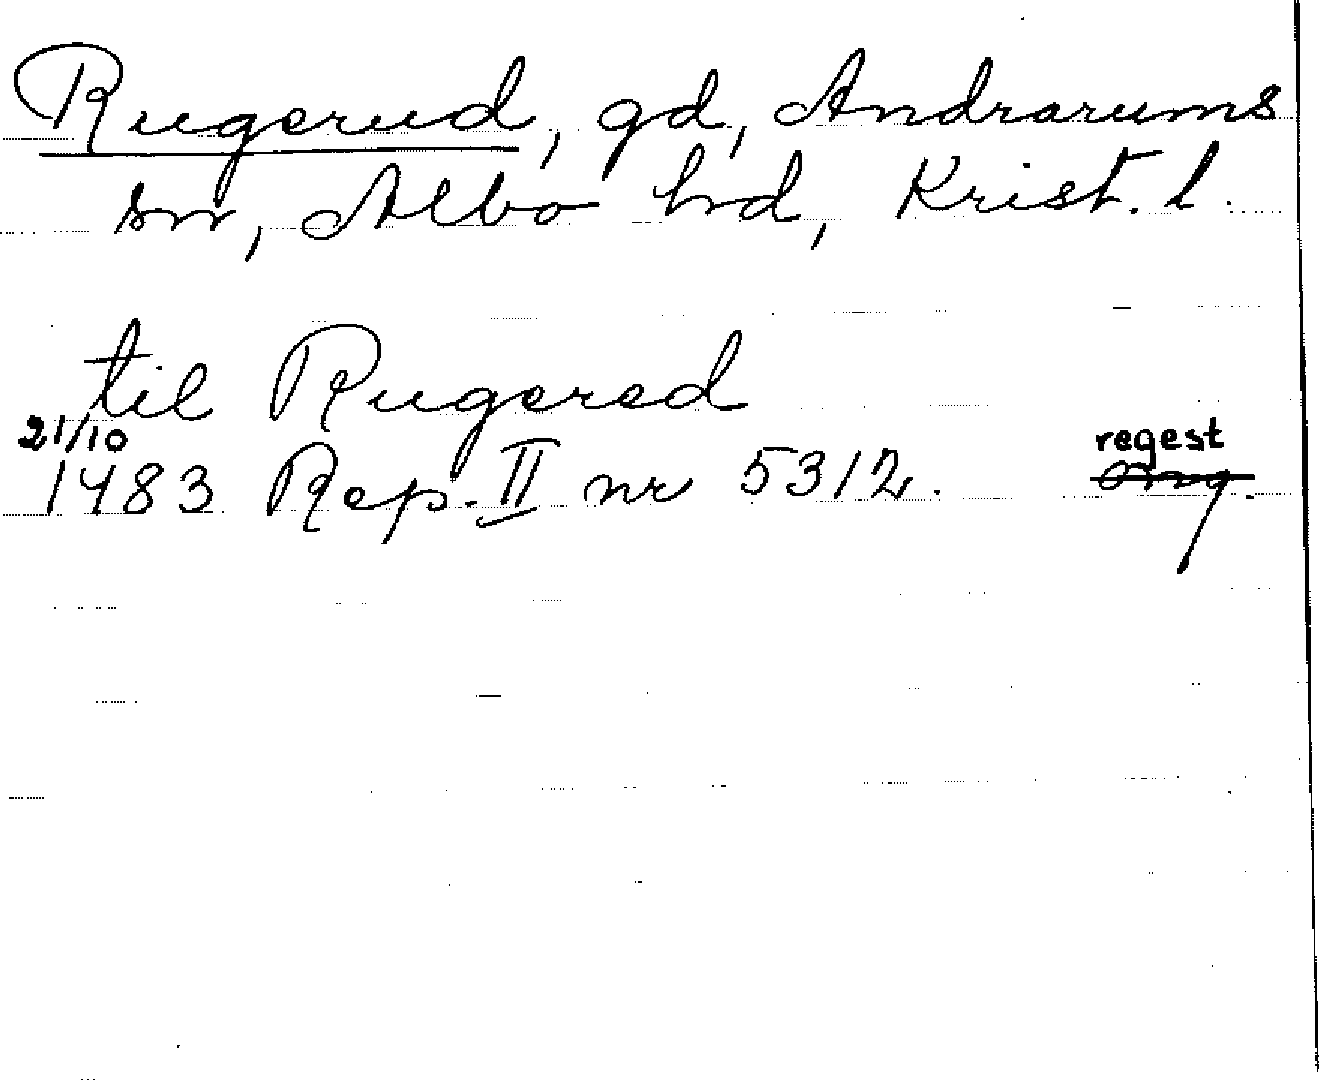 Rugerud, gd, Andrarums
sn, Albo hd, Krist. l.
til Rugered
21/10
1483 Rep. II nr 5312.
regest